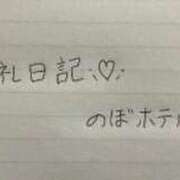 礼日記♡
のぼホテル